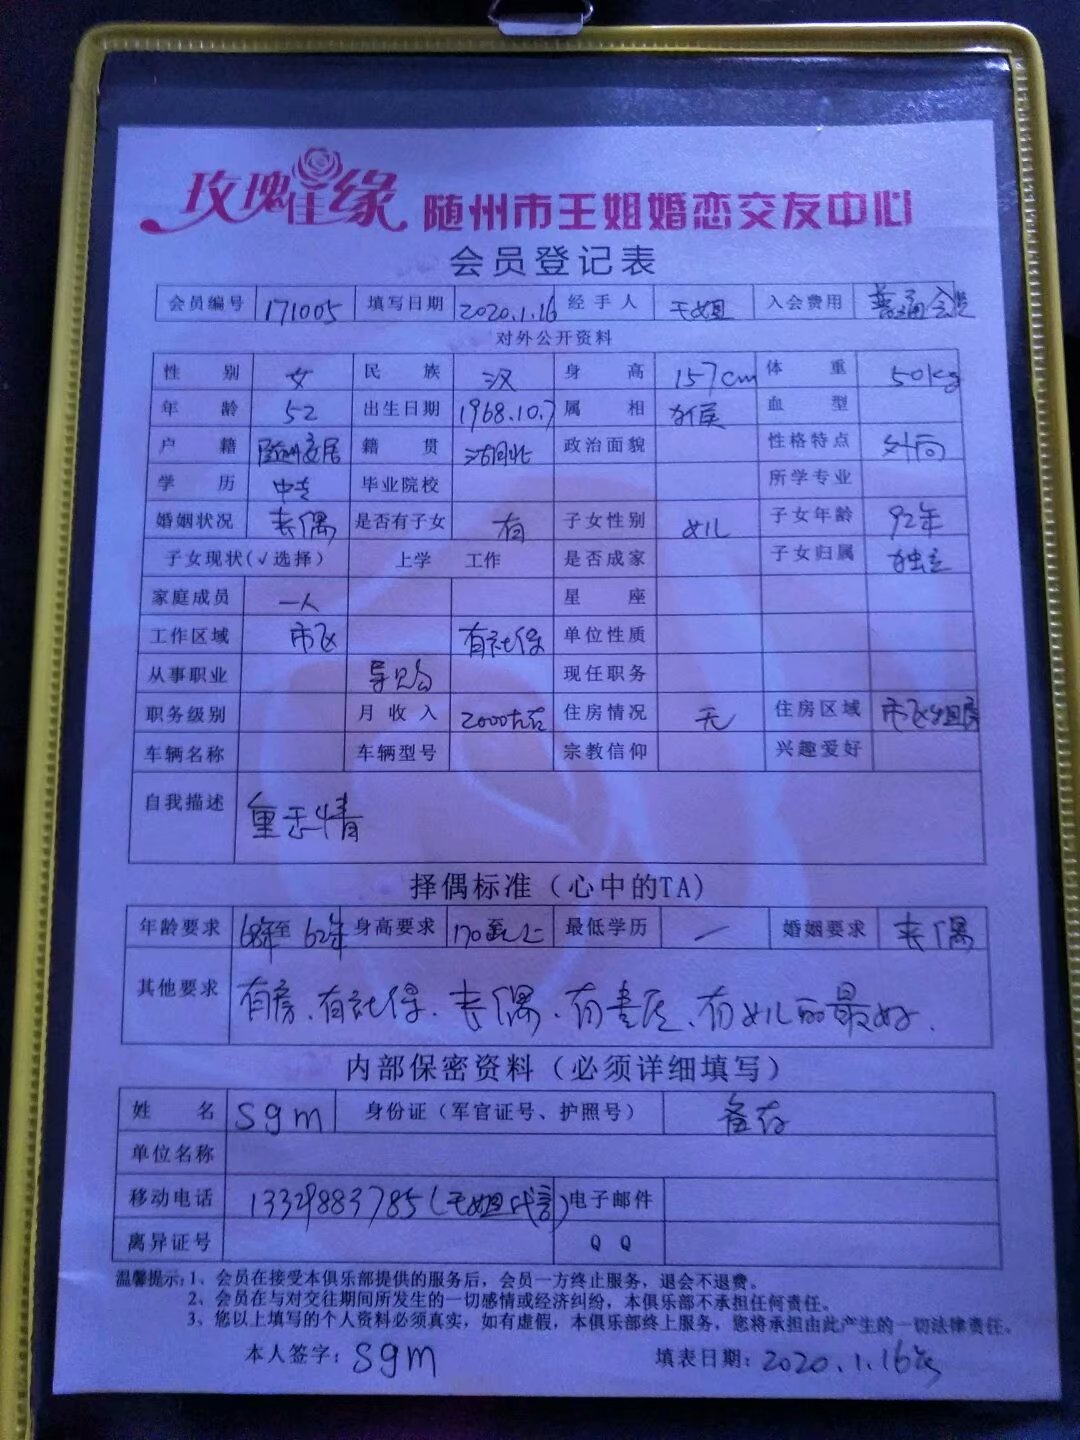 玫瑰佳缘 随州市王姐婚恋交友中心
会员登记表
会员编号 171005 填写日期 2020.1.16 经手人 王姐 入会费用 普通会员
对外公开资料
性别 女 民族 汉 身高 157cm 体重 50kg
年龄 52 出生日期 1968.10.7 属相 猴 血型
户籍 随州 籍贯 湖北 政治面貌 性格特点 外向
学历 中专 毕业院校 所学专业
婚姻状况 丧偶 是否有子女 有 子女性别 女儿 子女年龄 92年
子女现状(√选择) 上学 工作 是否成家 子女归属 独立
家庭成员 一人 星座
工作区域 市区 有社保 单位性质
从事职业 导购 现任职务
职务级别 月收入 2000左右 住房情况 无 住房区域 市区租房
车辆名称 车辆型号 宗教信仰 兴趣爱好
自我描述 重感情
择偶标准（心中的TA）
年龄要求 68年至62年 身高要求 170以上 最低学历 一 婚姻要求 丧偶
其他要求 有房、有社保、丧偶、有责任、有女儿的最好.
内部保密资料（必须详细填写）
姓名 sgm 身份证（军官证号、护照号） 备存
单位名称
移动电话 13329883785(王姐代言) 电子邮件
离异证号 QQ
温馨提示：1、会员在接受本俱乐部提供的服务后，会员一方终止服务，退会不退费。
2、会员在与对交往期间所发生的一切感情或经济纠纷，本俱乐部不承担任何责任。
3、您以上填写的个人资料必须真实，如有虚假，本俱乐部终上服务，您将承担由此产生的一切法律责任。
本人签字：sgm 填表日期：2020.1.16